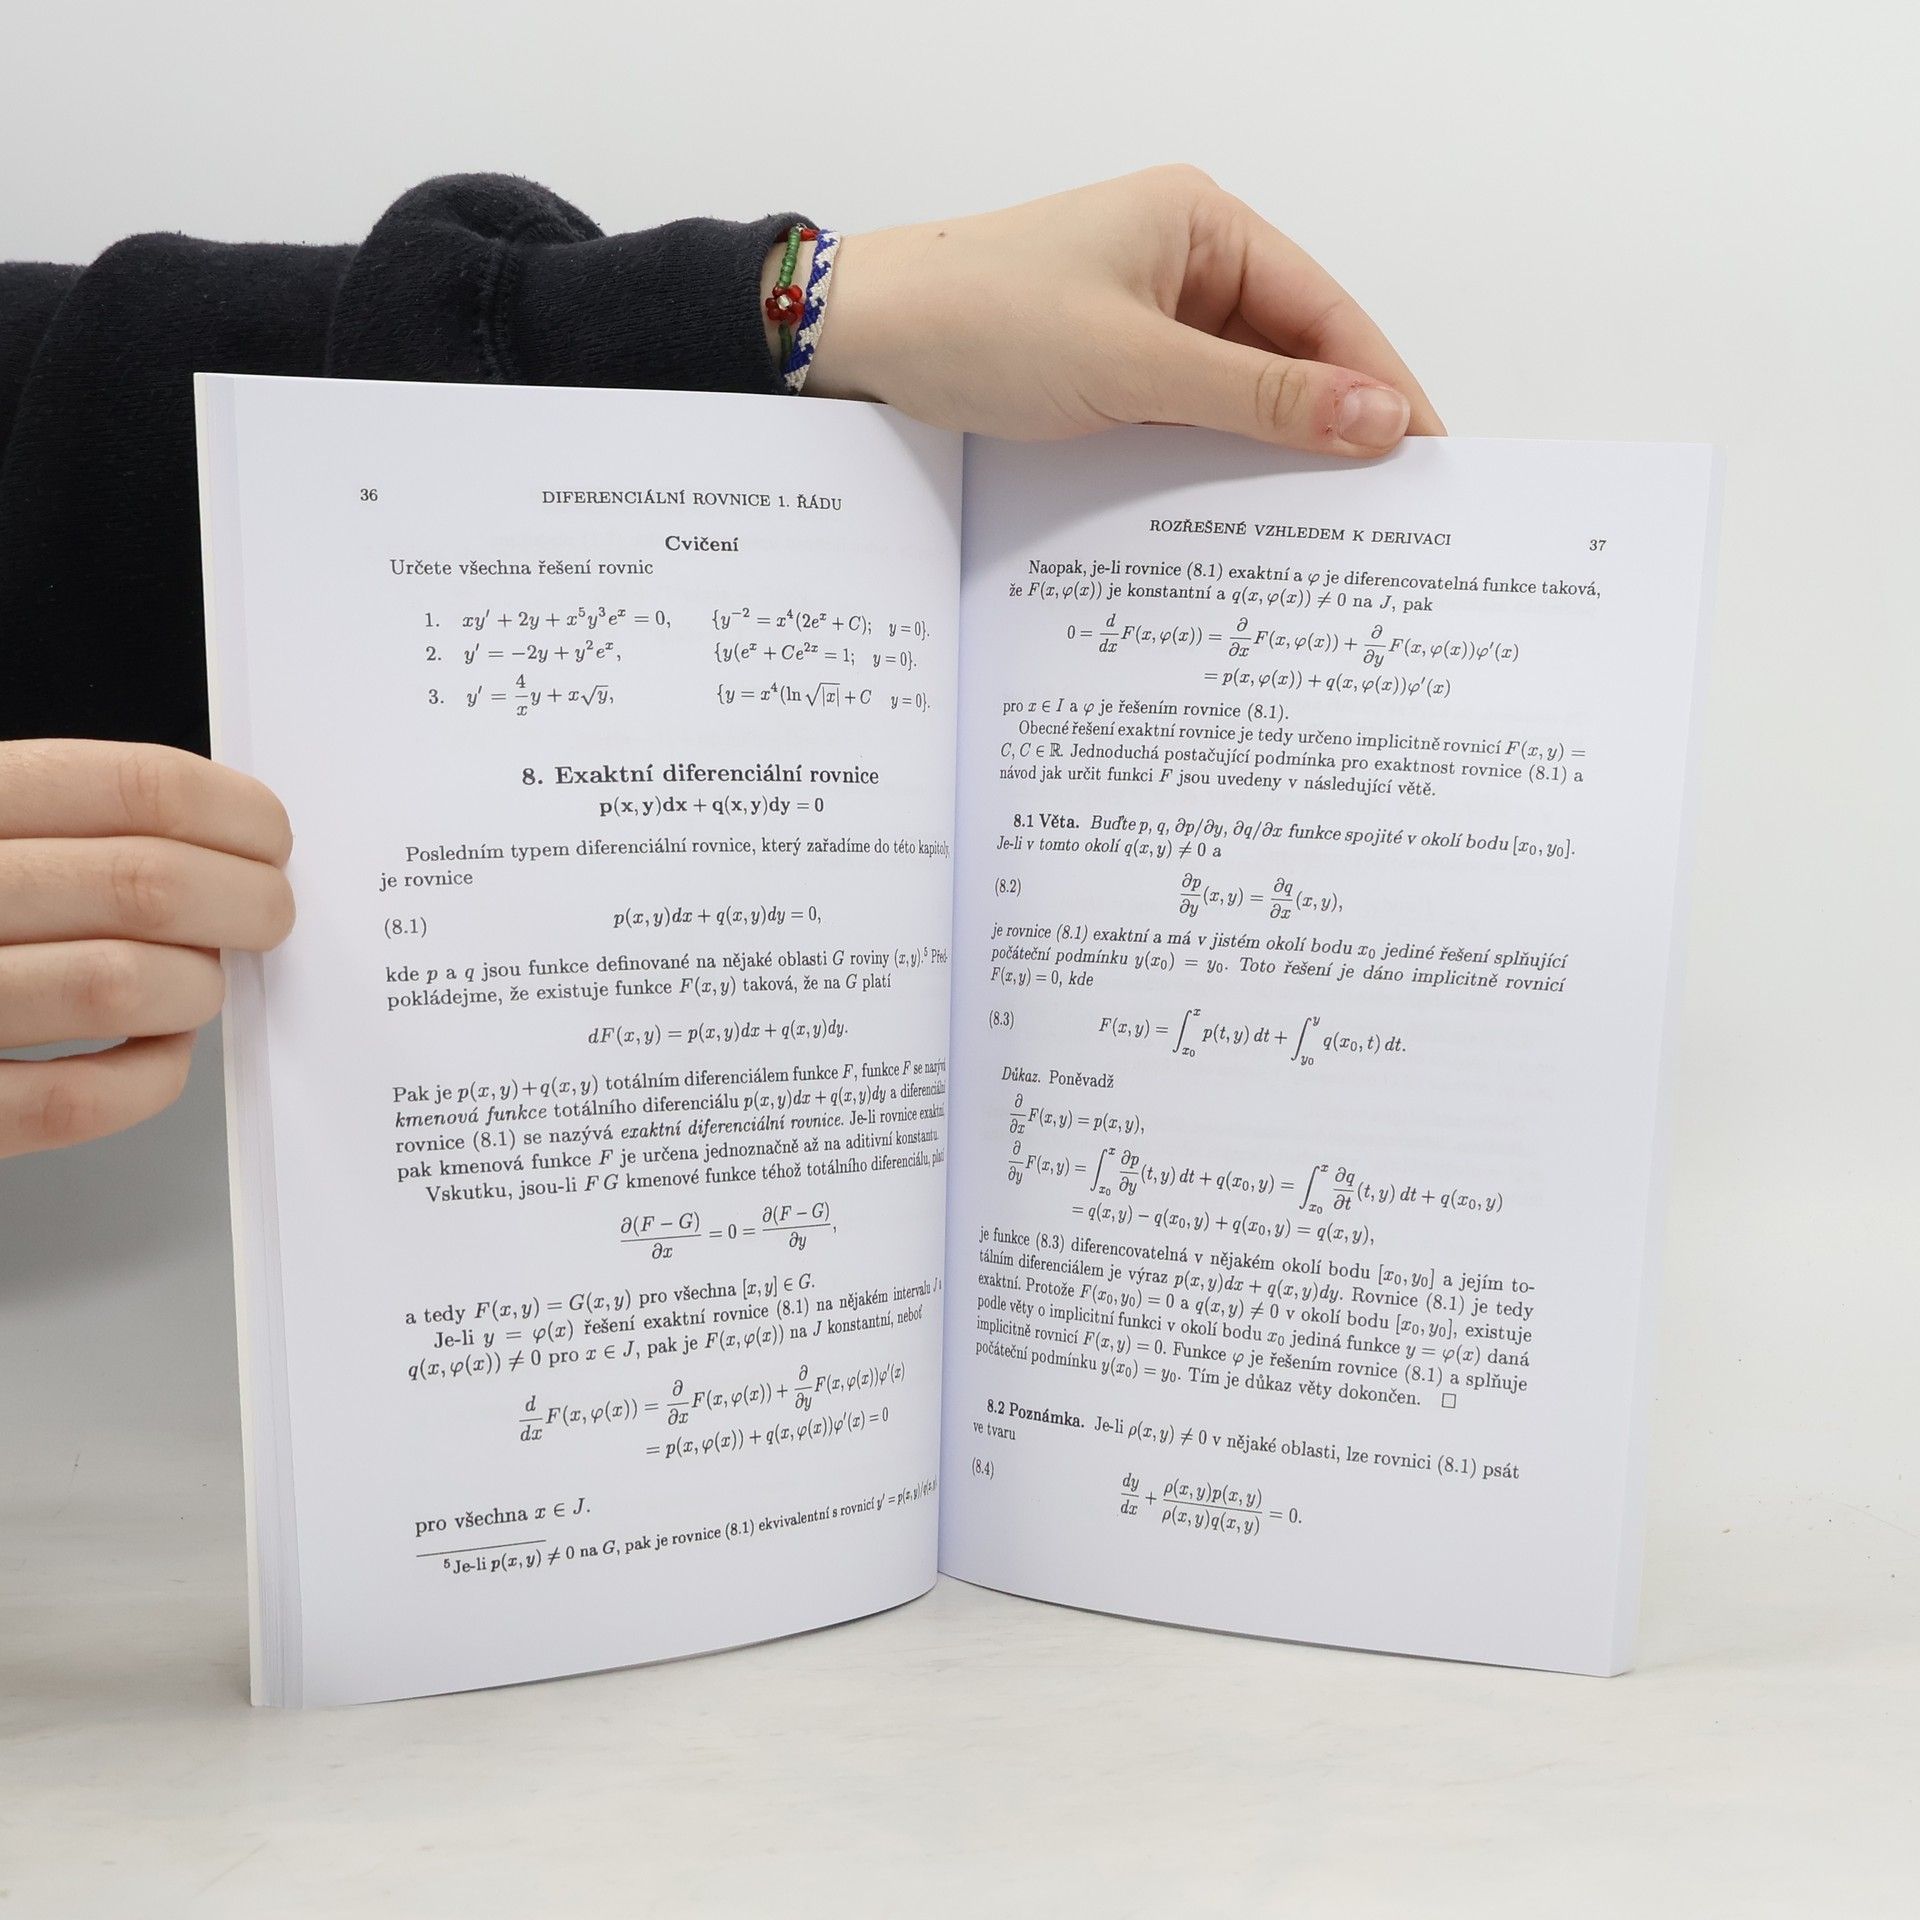 36
DIFERENCIÁLNÍ ROVNICE 1. ŘÁDU
Cvičení
Určete všechna řešení rovnic
1. xy′ + 2y + x⁵y³eˣ = 0, {y⁻² = x⁴(2eˣ + C); y = 0}.
2. y′ = −2y + y²eˣ, {y(eˣ + Ce²ˣ = 1; y = 0}.
3. y′ = 4/x y + x√y, {y = x⁴(ln √|x| + C y = 0}.
8. Exaktní diferenciální rovnice
p(x, y)dx + q(x, y)dy = 0
Posledním typem diferenciální rovnice, který zařadíme do této kapitoly,
je rovnice
(8.1) p(x, y)dx + q(x, y)dy = 0,
kde p a q jsou funkce definované na nějaké oblasti G roviny (x, y).⁵ Před-
pokládejme, že existuje funkce F(x, y) taková, že na G platí
dF(x, y) = p(x, y)dx + q(x, y)dy.
Pak je p(x, y)+q(x, y) totálním diferenciálem funkce F, funkce F se nazývá
kmenová funkce totálního diferenciálu p(x, y)dx + q(x, y)dy a diferenciální
rovnice (8.1) se nazývá exaktní diferenciální rovnice. Je-li rovnice exaktní,
pak kmenová funkce F je určena jednoznačně až na aditivní konstantu.
Vskutku, jsou-li F G kmenové funkce téhož totálního diferenciálu, platí
∂(F − G)/∂x = 0 = ∂(F − G)/∂y,
a tedy F(x, y) = G(x, y) pro všechna [x, y] ∈ G.
Je-li y = φ(x) řešení exaktní rovnice (8.1) na nějakém intervalu J a
q(x, φ(x)) ≠ 0 pro x ∈ J, pak je F(x, φ(x)) na J konstantní, neboť
d/dx F(x, φ(x)) = ∂/∂x F(x, φ(x)) + ∂/∂y F(x, φ(x))φ′(x)
= p(x, φ(x)) + q(x, φ(x))φ′(x) = 0
pro všechna x ∈ J.
⁵ Je-li p(x, y) ≠ 0 na G, pak je rovnice (8.1) ekvivalentní s rovnicí y′ = p(x, y)/q(x, y)
ROZŘEŠENÉ VZHLEDEM K DERIVACI
37
Naopak, je-li rovnice (8.1) exaktní a φ je diferencovatelná funkce taková,
že F(x, φ(x)) je konstantní a q(x, φ(x)) ≠ 0 na J, pak
0 = d/dx F(x, φ(x)) = ∂/∂x F(x, φ(x)) + ∂/∂y F(x, φ(x))φ′(x)
= p(x, φ(x)) + q(x, φ(x))φ′(x)
pro x ∈ I a φ je řešením rovnice (8.1).
Obecné řešení exaktní rovnice je tedy určeno implicitně rovnicí F(x, y) =
C, C ∈ ℝ. Jednoduchá postačující podmínka pro exaktnost rovnice (8.1) a
návod jak určit funkci F jsou uvedeny v následující větě.
8.1 Věta. Buďte p, q, ∂p/∂y, ∂q/∂x funkce spojité v okolí bodu [x₀, y₀].
Je-li v tomto okolí q(x, y) ≠ 0 a
(8.2) ∂p/∂y (x, y) = ∂q/∂x (x, y),
je rovnice (8.1) exaktní a má v jistém okolí bodu x₀ jediné řešení splňující
počáteční podmínku y(x₀) = y₀. Toto řešení je dáno implicitně rovnicí
F(x, y) = 0, kde
(8.3) F(x, y) = ∫_{x₀}^{x} p(t, y) dt + ∫_{y₀}^{y} q(x₀, t) dt.
Důkaz. Poněvadž
∂/∂x F(x, y) = p(x, y),
∂/∂y F(x, y) = ∫_{x₀}^{x} ∂p/∂y (t, y) dt + q(x₀, y) = ∫_{x₀}^{x} ∂q/∂t (t, y) dt + q(x₀, y)
= q(x, y) − q(x₀, y) + q(x₀, y) = q(x, y),
je funkce (8.3) diferencovatelná v nějakém okolí bodu [x₀, y₀] a jejím to-
tálním diferenciálem je výraz p(x, y)dx + q(x, y)dy. Rovnice (8.1) je tedy
exaktní. Protože F(x₀, y₀) = 0 a q(x, y) ≠ 0 v okolí bodu [x₀, y₀], existuje
podle věty o implicitní funkci v okolí bodu x₀ jediná funkce y = φ(x) daná
implicitně rovnicí F(x, y) = 0. Funkce φ je řešením rovnice (8.1) a splňuje
počáteční podmínku y(x₀) = y₀. Tím je důkaz věty dokončen. □
8.2 Poznámka. Je-li ρ(x, y) ≠ 0 v nějaké oblasti, lze rovnici (8.1) psát
ve tvaru
(8.4) dy/dx + ρ(x, y)p(x, y)/ρ(x, y)q(x, y) = 0.